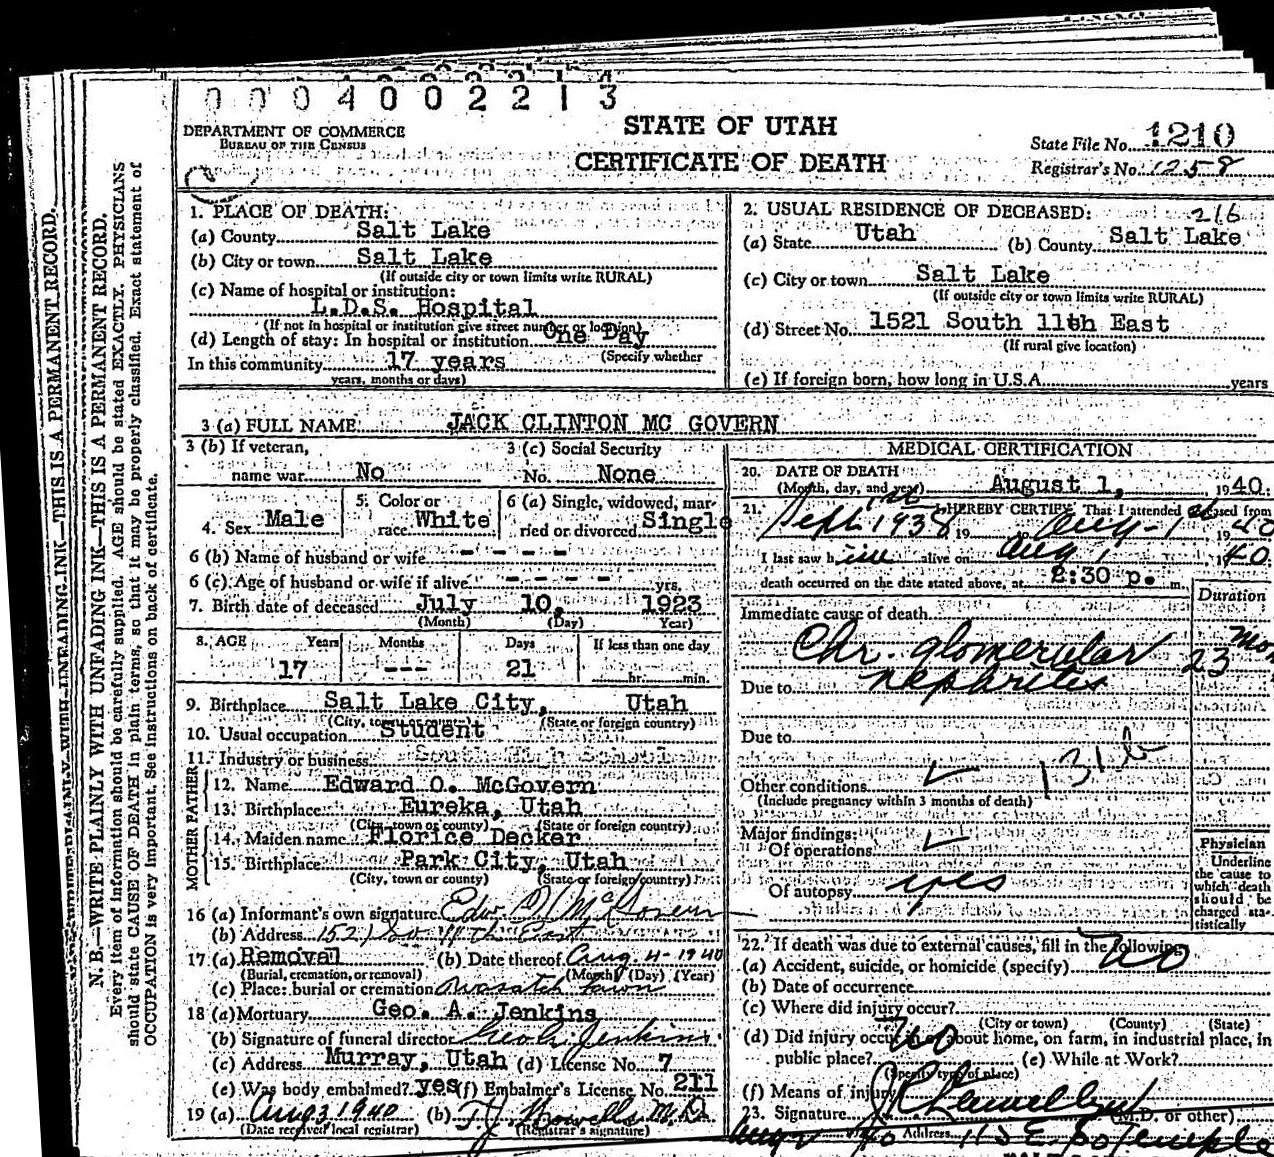 0 0 0 4 0 0 2 2 1 3
DEPARTMENT OF COMMERCE
BUREAU OF THE CENSUS
STATE OF UTAH
CERTIFICATE OF DEATH
State File No. 1210
Registrar's No. 1258
N. B.—WRITE PLAINLY WITH UNFADING INK—THIS IS A PERMANENT RECORD.
Every item of information should be carefully supplied. AGE should be stated EXACTLY. PHYSICIANS
should state CAUSE OF DEATH in plain terms, so that it may be properly classified. Exact statement of
OCCUPATION is very important. See instructions on back of certificate.
1. PLACE OF DEATH:
(a) County Salt Lake
(b) City or town Salt Lake
(If outside city or town limits write RURAL)
(c) Name of hospital or institution:
L.D.S. Hospital
(If not in hospital or institution give street number or location)
(d) Length of stay: In hospital or institution One Day
(Specify whether
In this community 17 years
years, months or days)
2. USUAL RESIDENCE OF DECEASED: 216
(a) State Utah (b) County Salt Lake
(c) City or town Salt Lake
(If outside city or town limits write RURAL)
(d) Street No. 1521 South 11th East
(If rural give location)
(e) If foreign born, how long in U.S.A. years
3 (a) FULL NAME JACK CLINTON MC GOVERN
3 (b) If veteran,
name war No
3 (c) Social Security
No. None
4. Sex Male
5. Color or
race White
6 (a) Single, widowed, mar-
ried or divorced Single
6 (b) Name of husband or wife - - - -
6 (c) Age of husband or wife if alive - - - - - yrs.
7. Birth date of deceased July 10, 1923
(Month) (Day) Year)
8. AGE Years Months Days If less than one day
17 --- 21 hr. min.
9. Birthplace Salt Lake City, Utah
(City, town or county) (State or foreign country)
10. Usual occupation Student
11. Industry or business South High School
FATHER
12. Name Edward O. McGovern
13. Birthplace Eureka, Utah
(City, town or county) (State or foreign country)
MOTHER
14. Maiden name Florice Decker
15. Birthplace Park City, Utah
(City, town or county) (State or foreign country)
16 (a) Informant's own signature Edw O. McGovern
(b) Address 1521 So. 11th East
17 (a) Removal (b) Date thereof Aug 4-1940
(Burial, cremation, or removal) (Month) (Day) (Year)
(c) Place: burial or cremation Wasatch Lawn
18 (a) Mortuary Geo. A. Jenkins
(b) Signature of funeral director Geo A Jenkins
(c) Address Murray, Utah (d) License No. 7
(e) Was body embalmed? yes (f) Embalmer's License No. 211
19 (a) Aug 3 1940 (b) T.J. Howells M.D.
(Date received local registrar) (Registrar's signature)
MEDICAL CERTIFICATION
20. DATE OF DEATH
(Month, day, and year) August 1, 1940.
21. I HEREBY CERTIFY, That I attended deceased from
Sept. 1st 1938 19 to Aug-1st 1940
I last saw him alive on Aug 1 1940.
death occurred on the date stated above, at 2:30 p. m.
Duration
Immediate cause of death
Chr. glomerular 23 Mon
nephritis
Due to
Due to
131b
Other conditions ✓
(Include pregnancy within 3 months of death)
Major findings:
Of operations ✓
Of autopsy yes
Physician
Underline
the cause to
which death
should be
charged sta-
tistically
22. If death was due to external causes, fill in the following:
(a) Accident, suicide, or homicide (specify) No
(b) Date of occurrence
(c) Where did injury occur?
(City or town) (County) (State)
(d) Did injury occur in or about home, on farm, in industrial place, in
public place? No (e) While at Work?
(Specify type of place)
(f) Means of injury
23. Signature (M.D. or other)
Aug 2 40 Address 115 E. So Temple